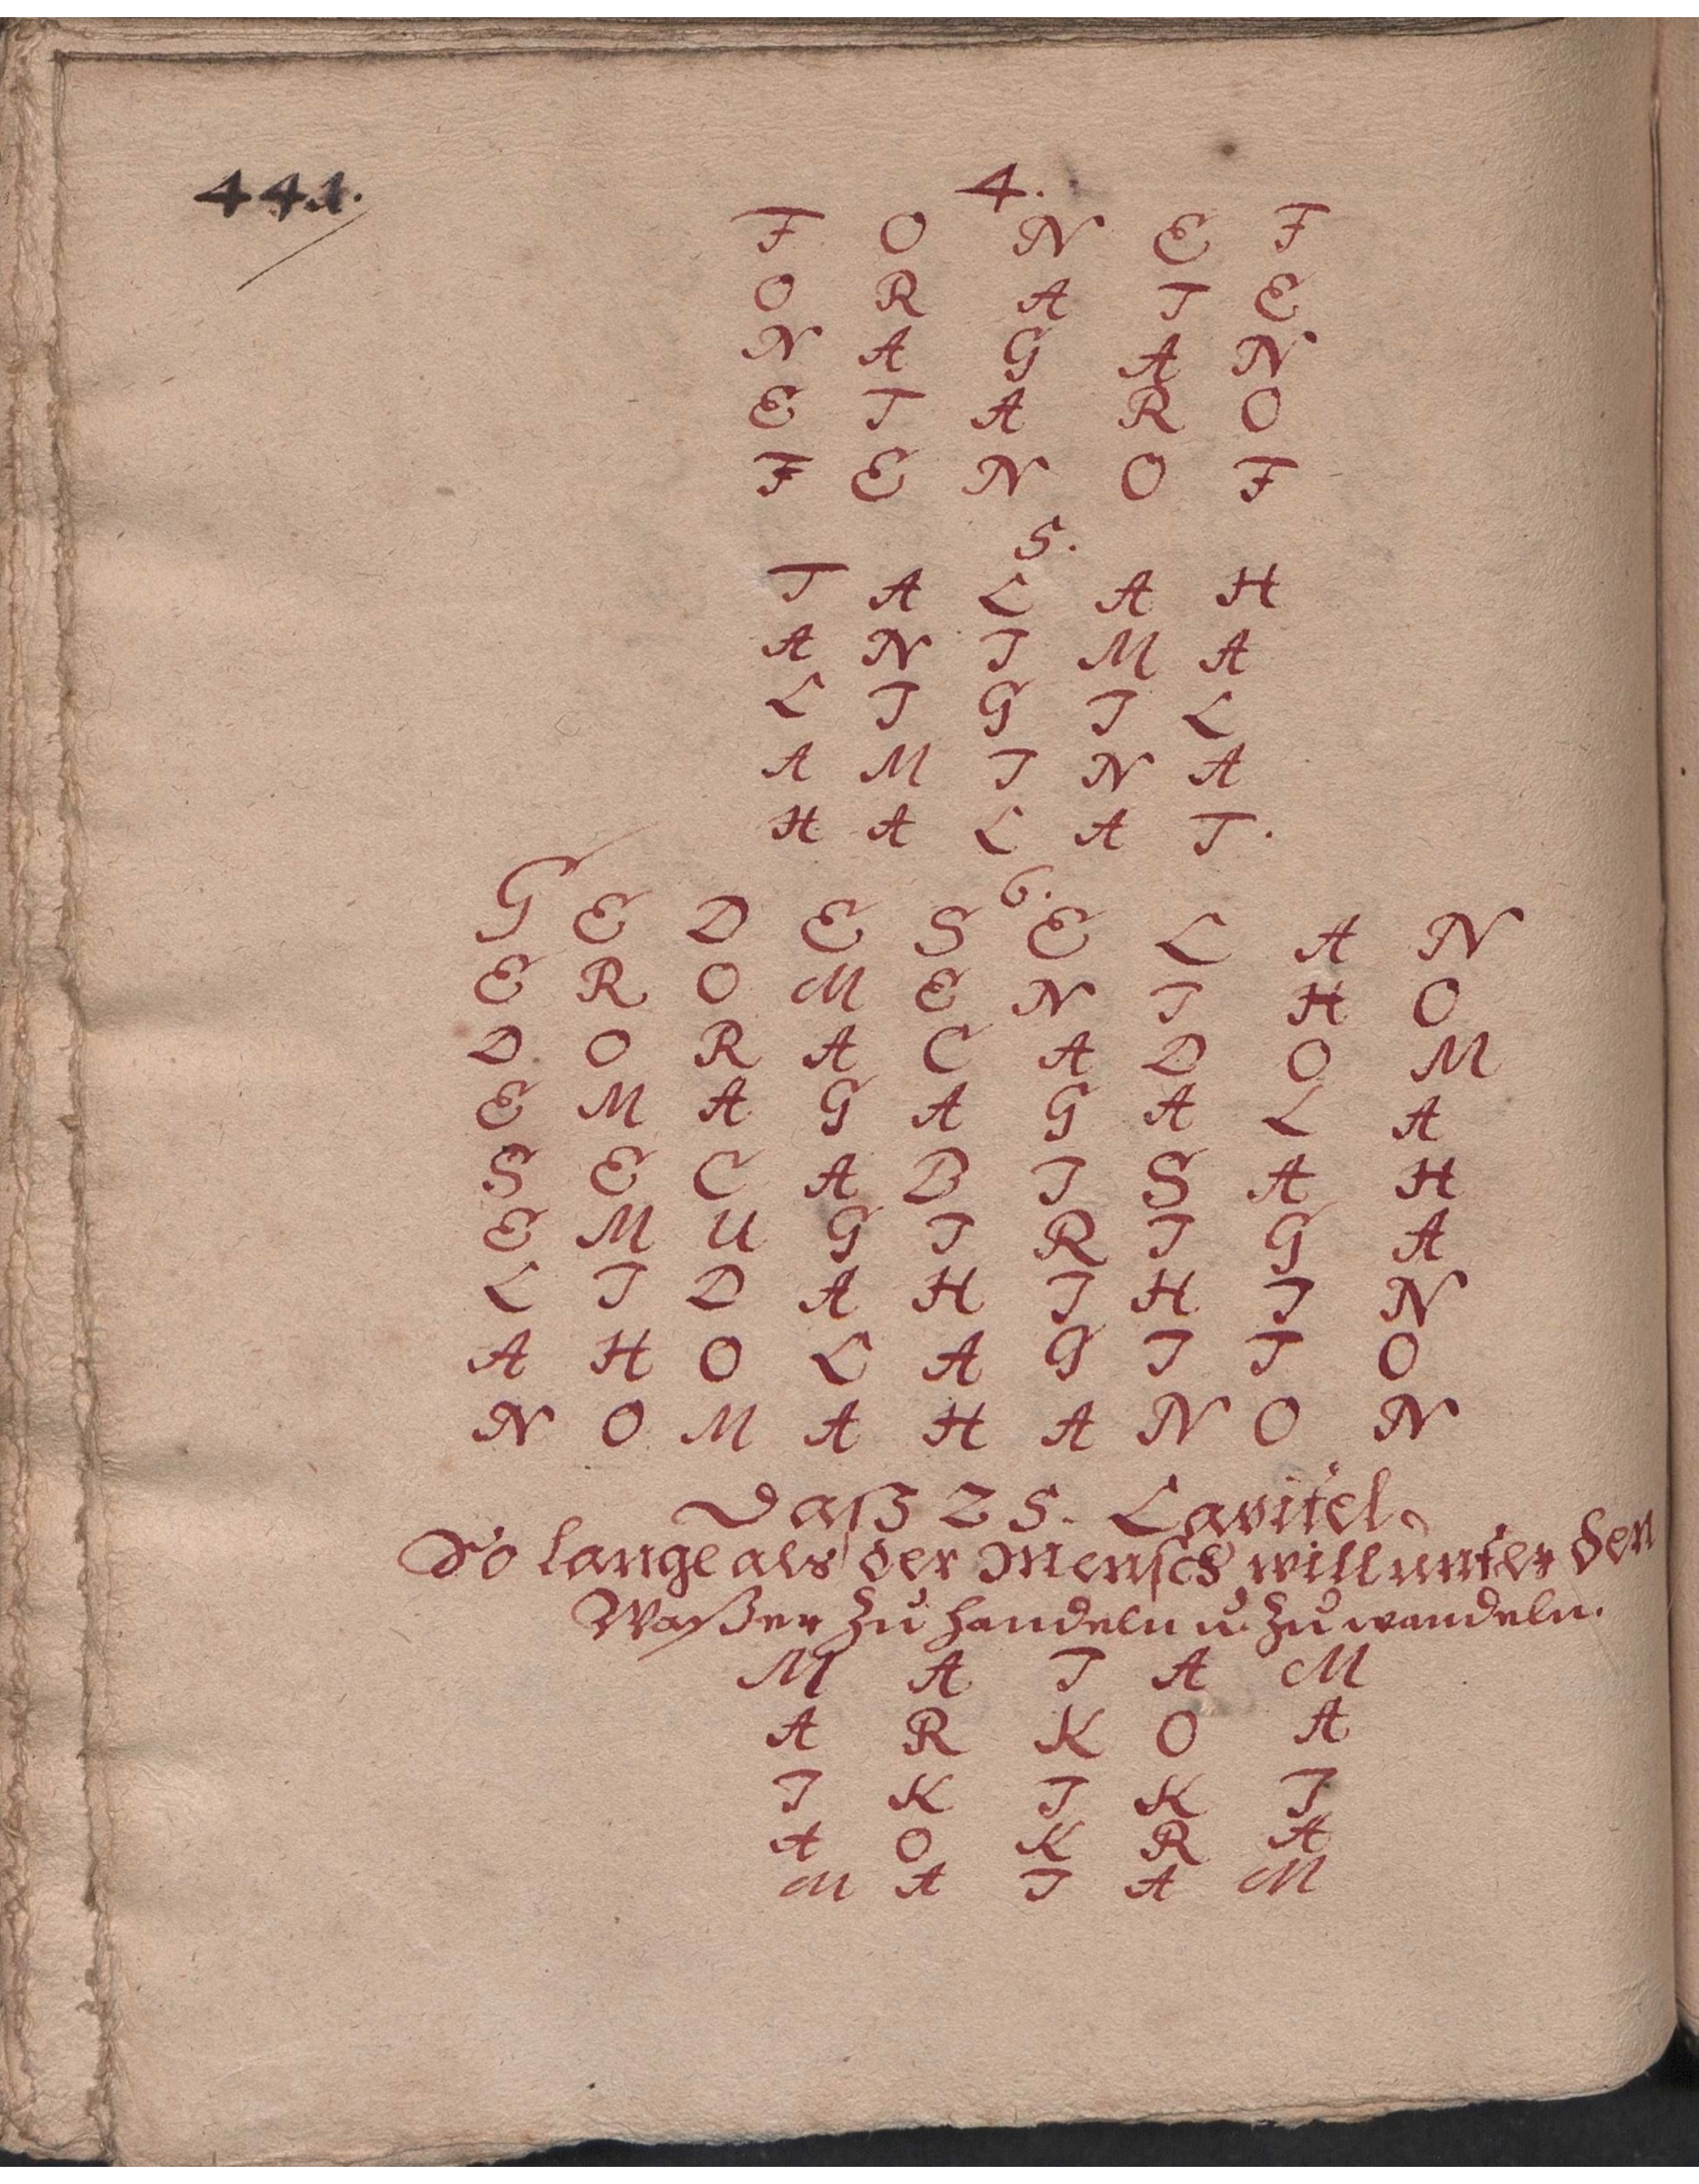 441.
4.
F O N E F
O R A T E
N A G A N
E T A R O
F E N O F
5.
T A L A H
A N I M A
L I G I L
A M I N A
H A L A T.
6.
G E D E S E L A N
E R O M E N I H O
D O R A C A D O M
E M A G A G A L A
S E C A B I S A H
E M U G I R I G A
L I D A H I H I N
A H O L A G I T O
N O M A H A N O N
Daß 25. Capitel.
So lange als der Mensch will unter den
Waßer zu handeln u. zu wandeln.
M A I A M
A R K O A
I K I K I
A O K R A
M A I A M